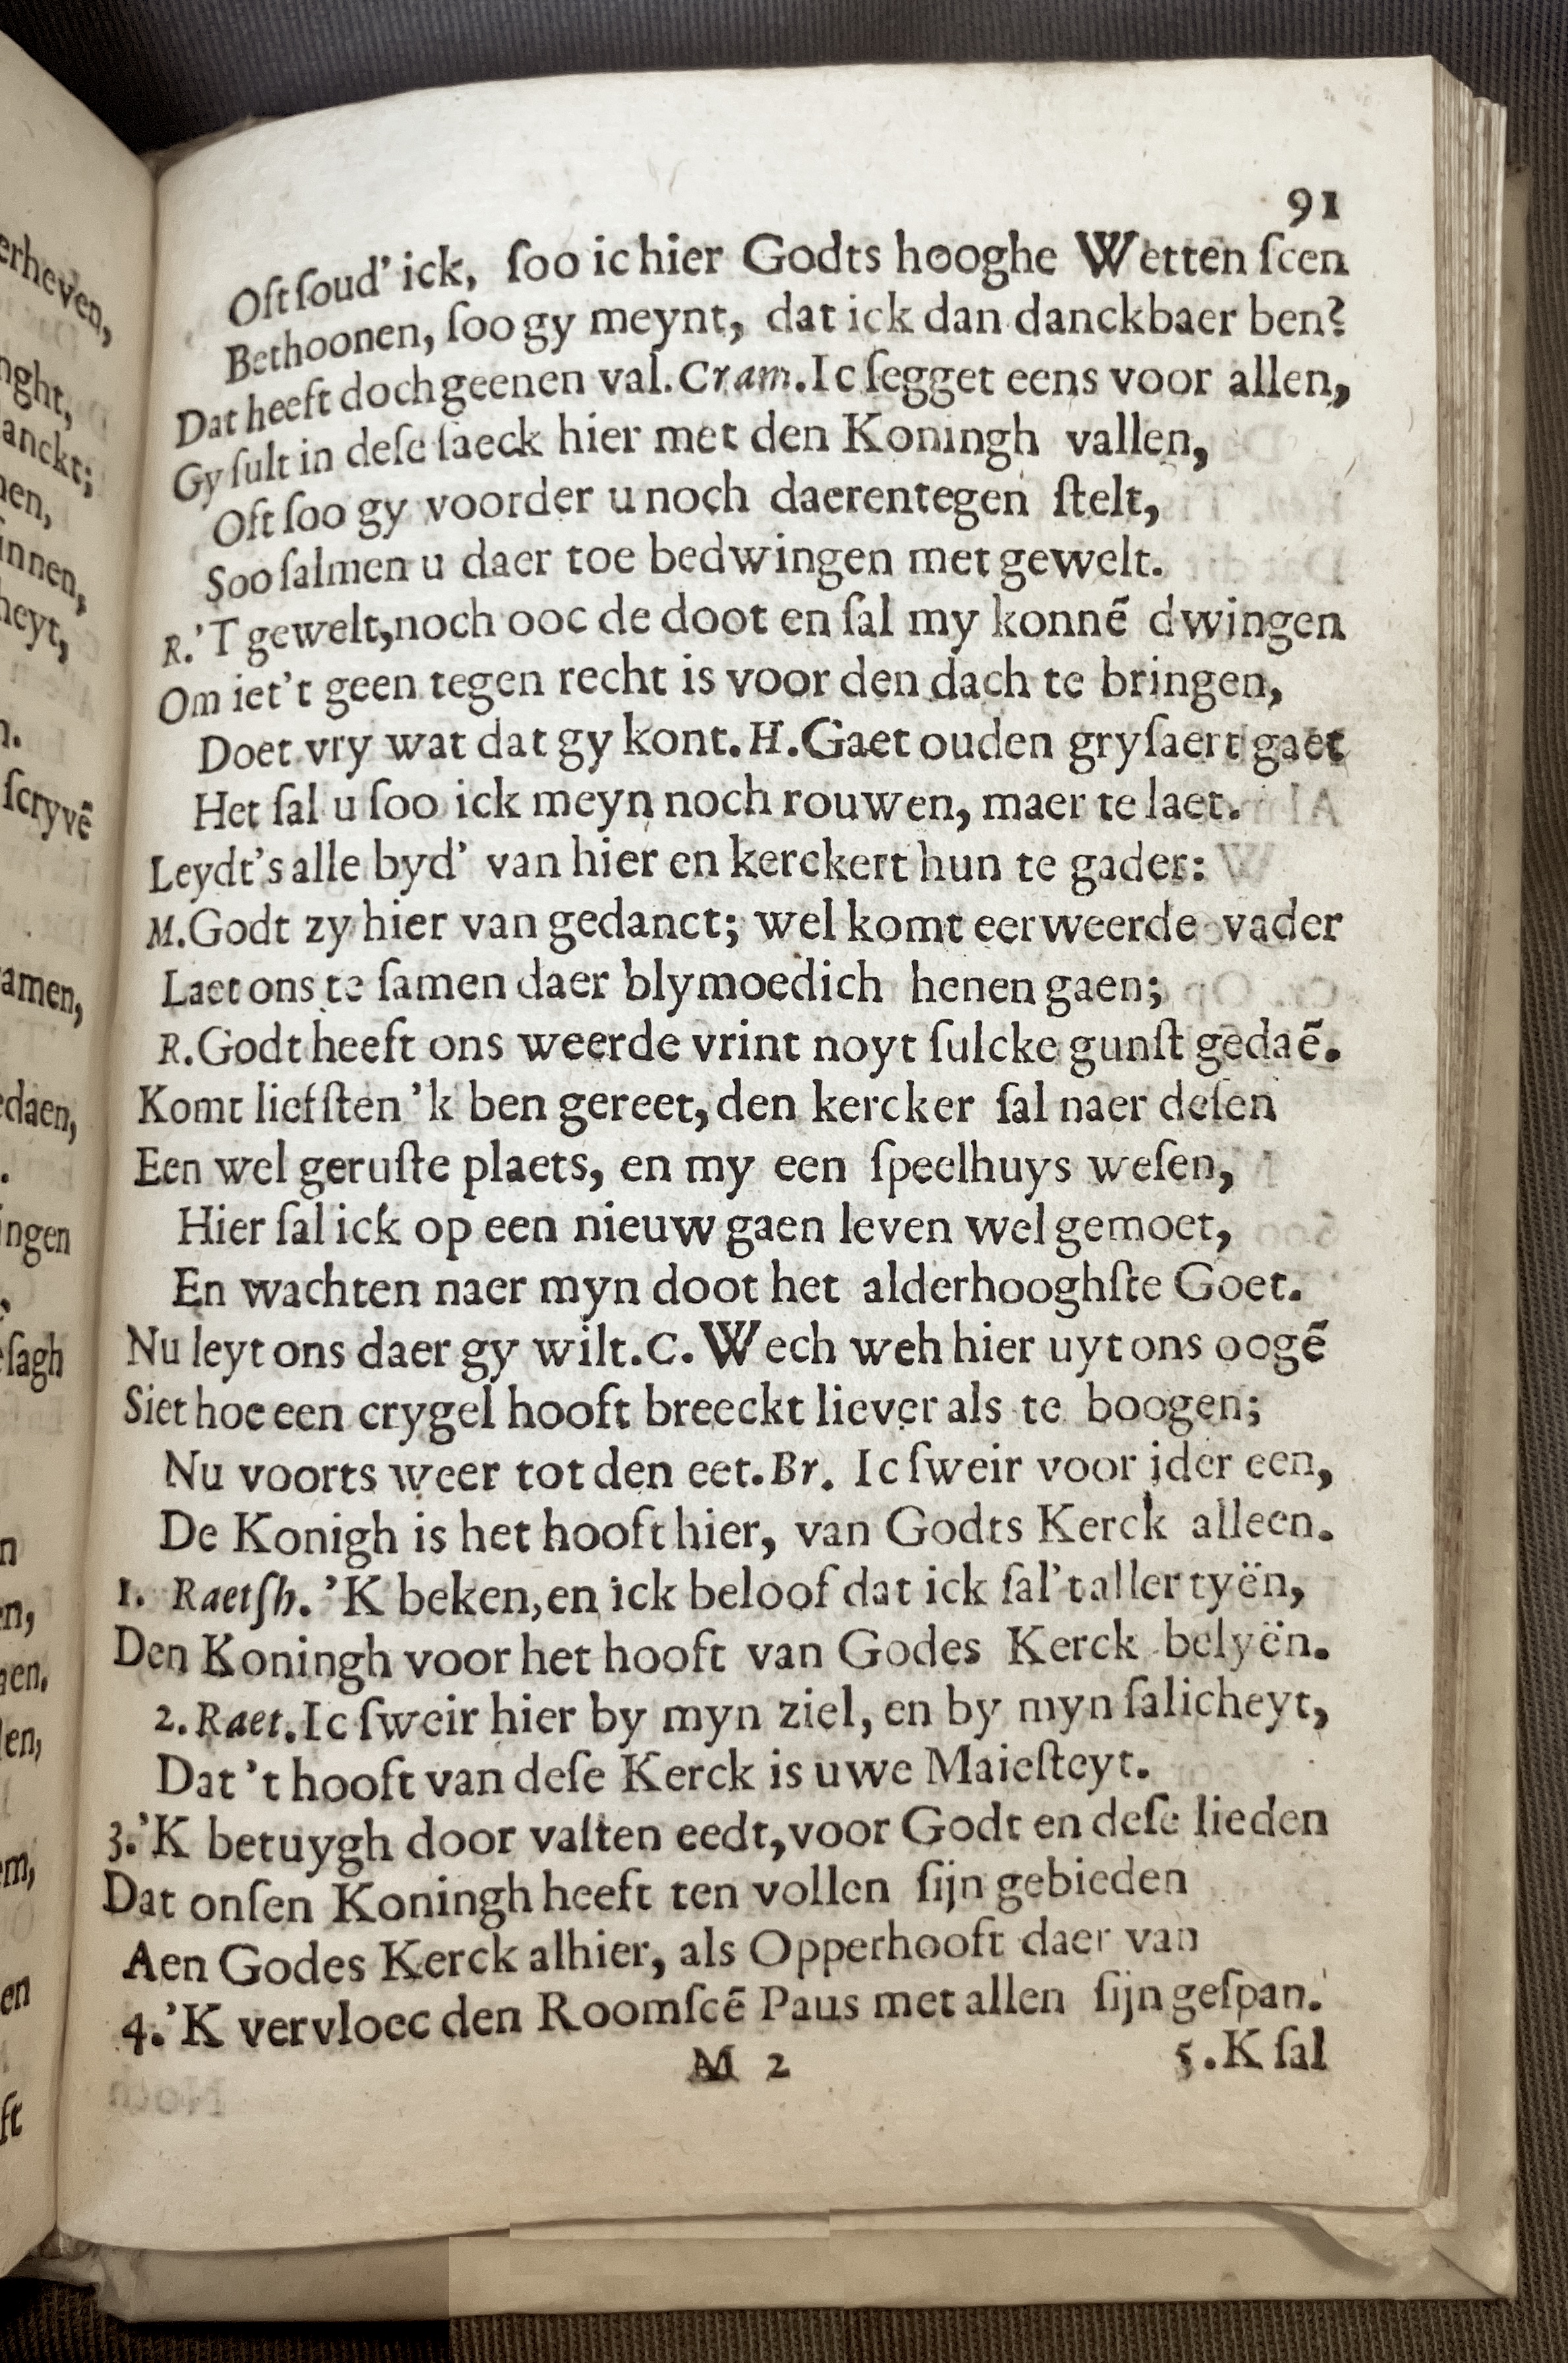 91
Oft ſoud' ick, ſoo ic hier Godts hooghe Wetten ſcen
Bethoonen, ſoo gy meynt, dat ick dan danckbaer ben?
Dat heeft doch geenen val. Cram. Ic ſegget eens voor allen,
Gy ſult in deſe ſaeck hier met den Koningh vallen,
Oft ſoo gy voorder u noch daerentegen ſtelt,
Soo ſalmen u daer toe bedwingen met gewelt.
R. 'T gewelt, noch ooc de doot en ſal my konnē dwingen
Om iet't geen tegen recht is voor den dach te bringen,
Doet vry wat dat gy kont. H. Gaet ouden gryſaert gaet
Het ſal u ſoo ick meyn noch rouwen, maer te laet.
Leydt's alle byd' van hier en kerckert hun te gader:
M. Godt zy hier van gedanct; wel komt eerweerde vader
Laet ons te ſamen daer blymoedich henen gaen;
R. Godt heeft ons weerde vrint noyt ſulcke gunſt gedaē.
Komt liefſten 'k ben gereet, den kercker ſal naer deſen
Een wel geruſte plaets, en my een ſpeelhuys weſen,
Hier ſal ick op een nieuw gaen leven wel gemoet,
En wachten naer myn doot het alderhooghſte Goet.
Nu leyt ons daer gy wilt. C. Wech weh hier uyt ons oogē
Siet hoe een crygel hooft breeckt liever als te boogen;
Nu voorts weer tot den eet. Br. Ic ſweir voor ider een,
De Konigh is het hooft hier, van Godts Kerck alleen.
1. Raetſh. 'K beken, en ick beloof dat ick ſal't aller tyën,
Den Koningh voor het hooft van Godes Kerck belyën.
2. Raet. Ic ſweir hier by myn ziel, en by myn ſalicheyt,
Dat 't hooft van deſe Kerck is uwe Maieſteyt.
3. 'K betuygh door vaſten eedt, voor Godt en deſe lieden
Dat onſen Koningh heeft ten vollen ſijn gebieden
Aen Godes Kerck alhier, als Opperhooft daer van
4. 'K vervloec den Roomſcē Paus met allen ſijn geſpan.
M 2
5. K ſal